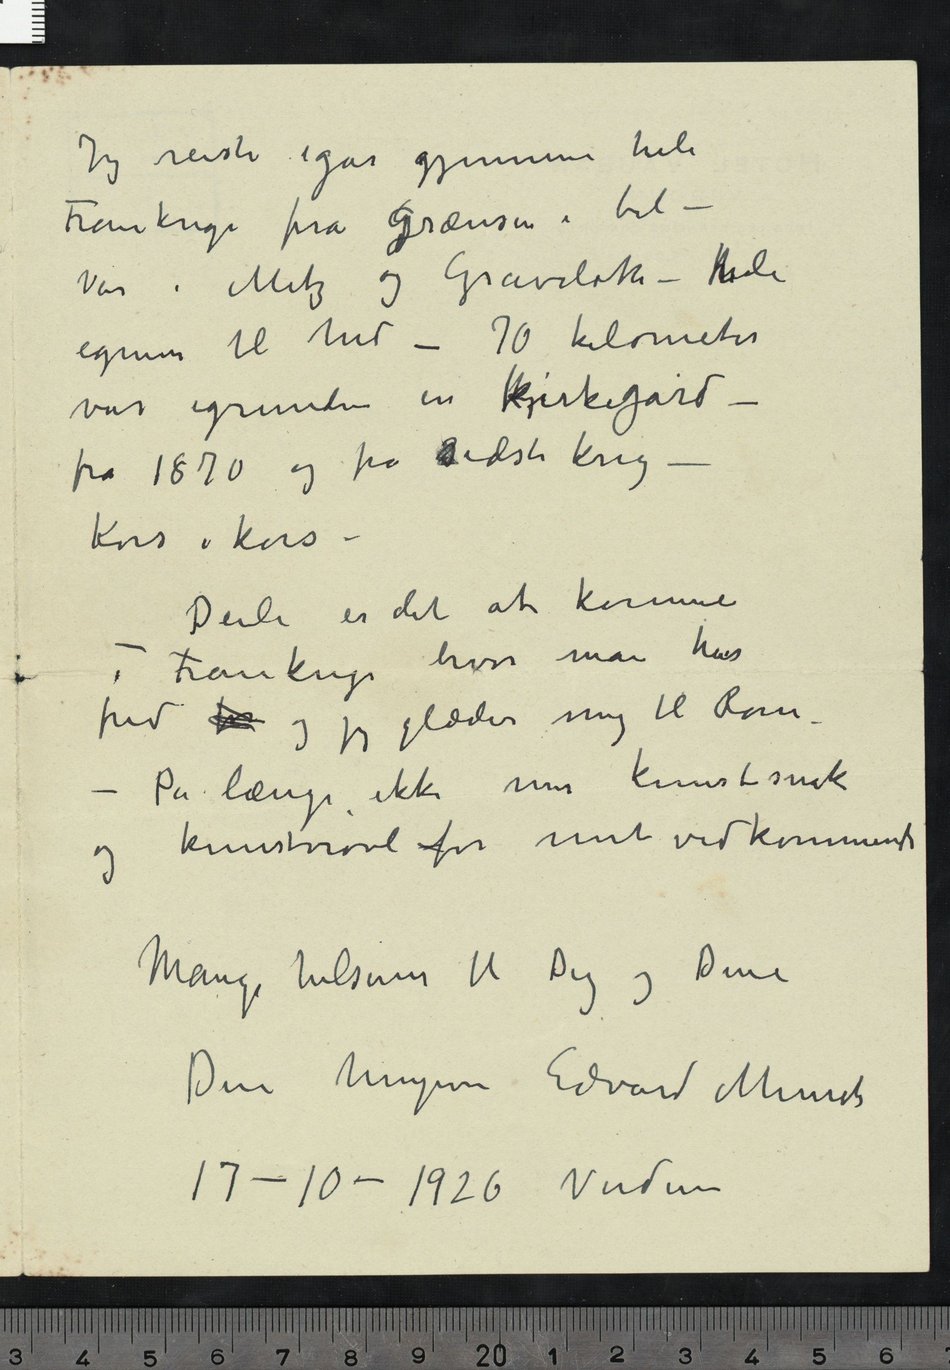 Jeg reiste igår gjennem hele
Frankrige fra Grænsen i bil –
Var i Metz og Gravelotte – Hele
egnen til hid – 70 kilometer
var igrunden en Kirkegård –
fra 1870 og fra sidste krig –
Kors i kors –
Deili er det at komme
i Frankrige hvor man har
fred og jeg glæder mig til Rom –
– På længe ikke mer kunstsnak
og kunstvrøvl for mit vedkommende
Mange hilsener til Dig og Dine
Din hengivne Edvard Munch
17–10–1926 Verdun
3 4 5 6 7 8 9 20 1 2 3 4 5 6